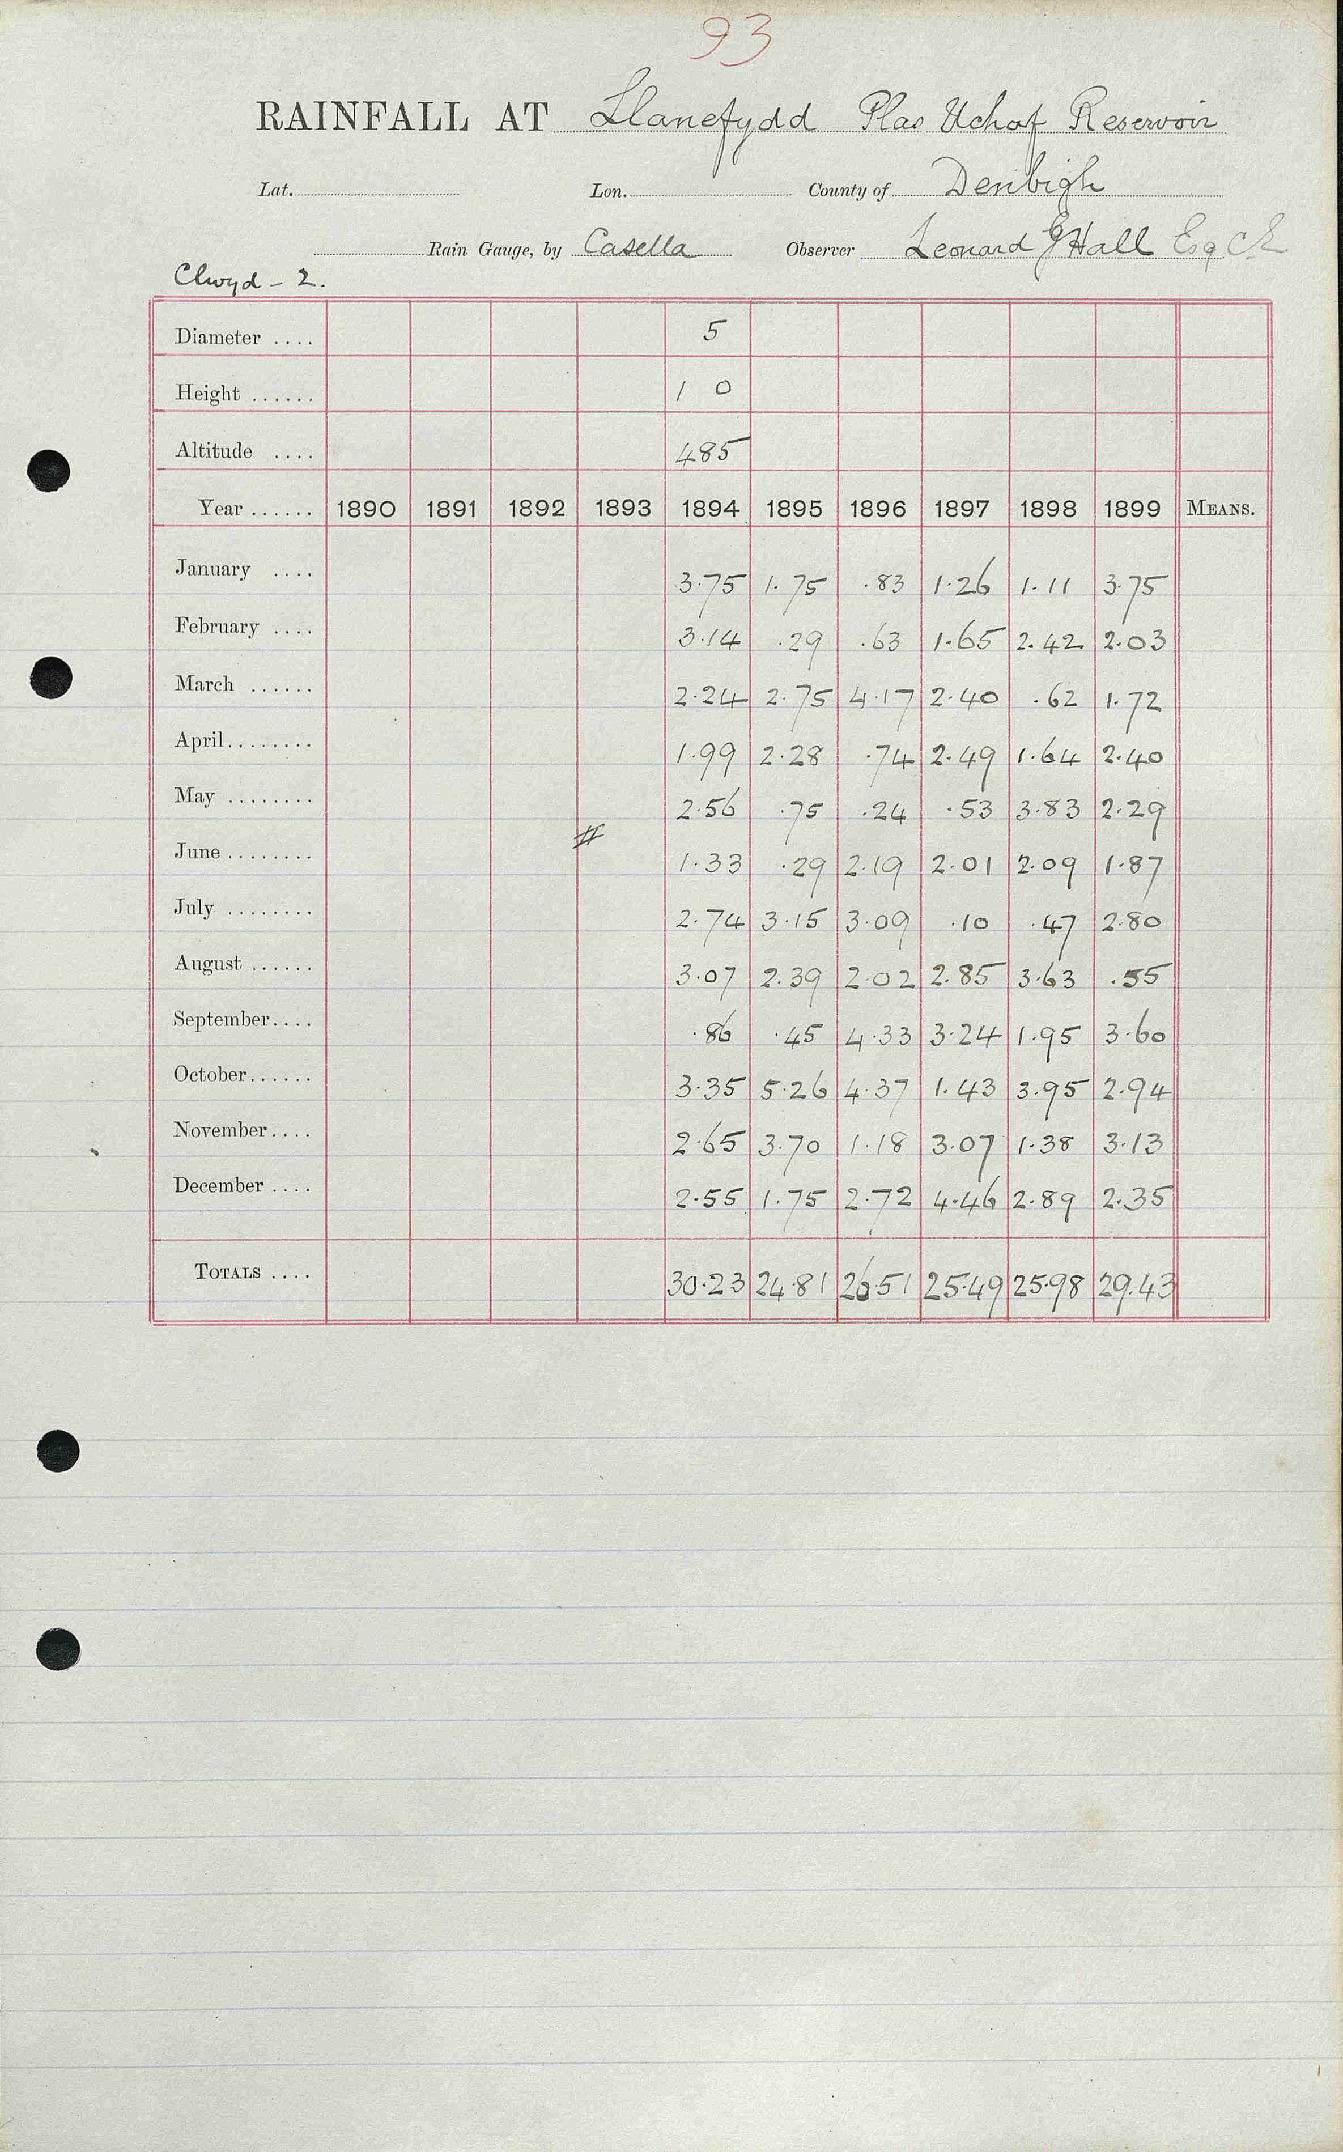 93
RAINFALL AT Llanefydd Plas Uchaf Reservoir
Lat. Lon. County of Denbigh
Rain Gauge, by Casella Observer Leonard G Hall Esq C.E
Clwyd - 2.
Diameter .... 5
Height ...... 1 0
Altitude .... 485
Year ...... 1890 1891 1892 1893 1894 1895 1896 1897 1898 1899 MEANS.
January .... 3.75 1.75 .83 1.26 1.11 3.75
February .... 3.14 .29 .63 1.65 2.42 2.03
March ...... 2.24 2.75 4.17 2.40 .62 1.72
April ........ 1.99 2.28 .74 2.49 1.64 2.40
May ........ 2.56 .75 .24 .53 3.83 2.29
June ........ # 1.33 .29 2.19 2.01 2.09 1.87
July ........ 2.74 3.15 3.09 .10 .47 2.80
August ...... 3.07 2.39 2.02 2.85 3.63 .55
September.... .86 .45 4.33 3.24 1.95 3.60
October...... 3.35 5.26 4.37 1.43 3.95 2.94
November.... 2.65 3.70 1.18 3.07 1.38 3.13
December .... 2.55 1.75 2.72 4.46 2.89 2.35
TOTALS .... 30.23 24.81 26.51 25.49 25.98 29.43